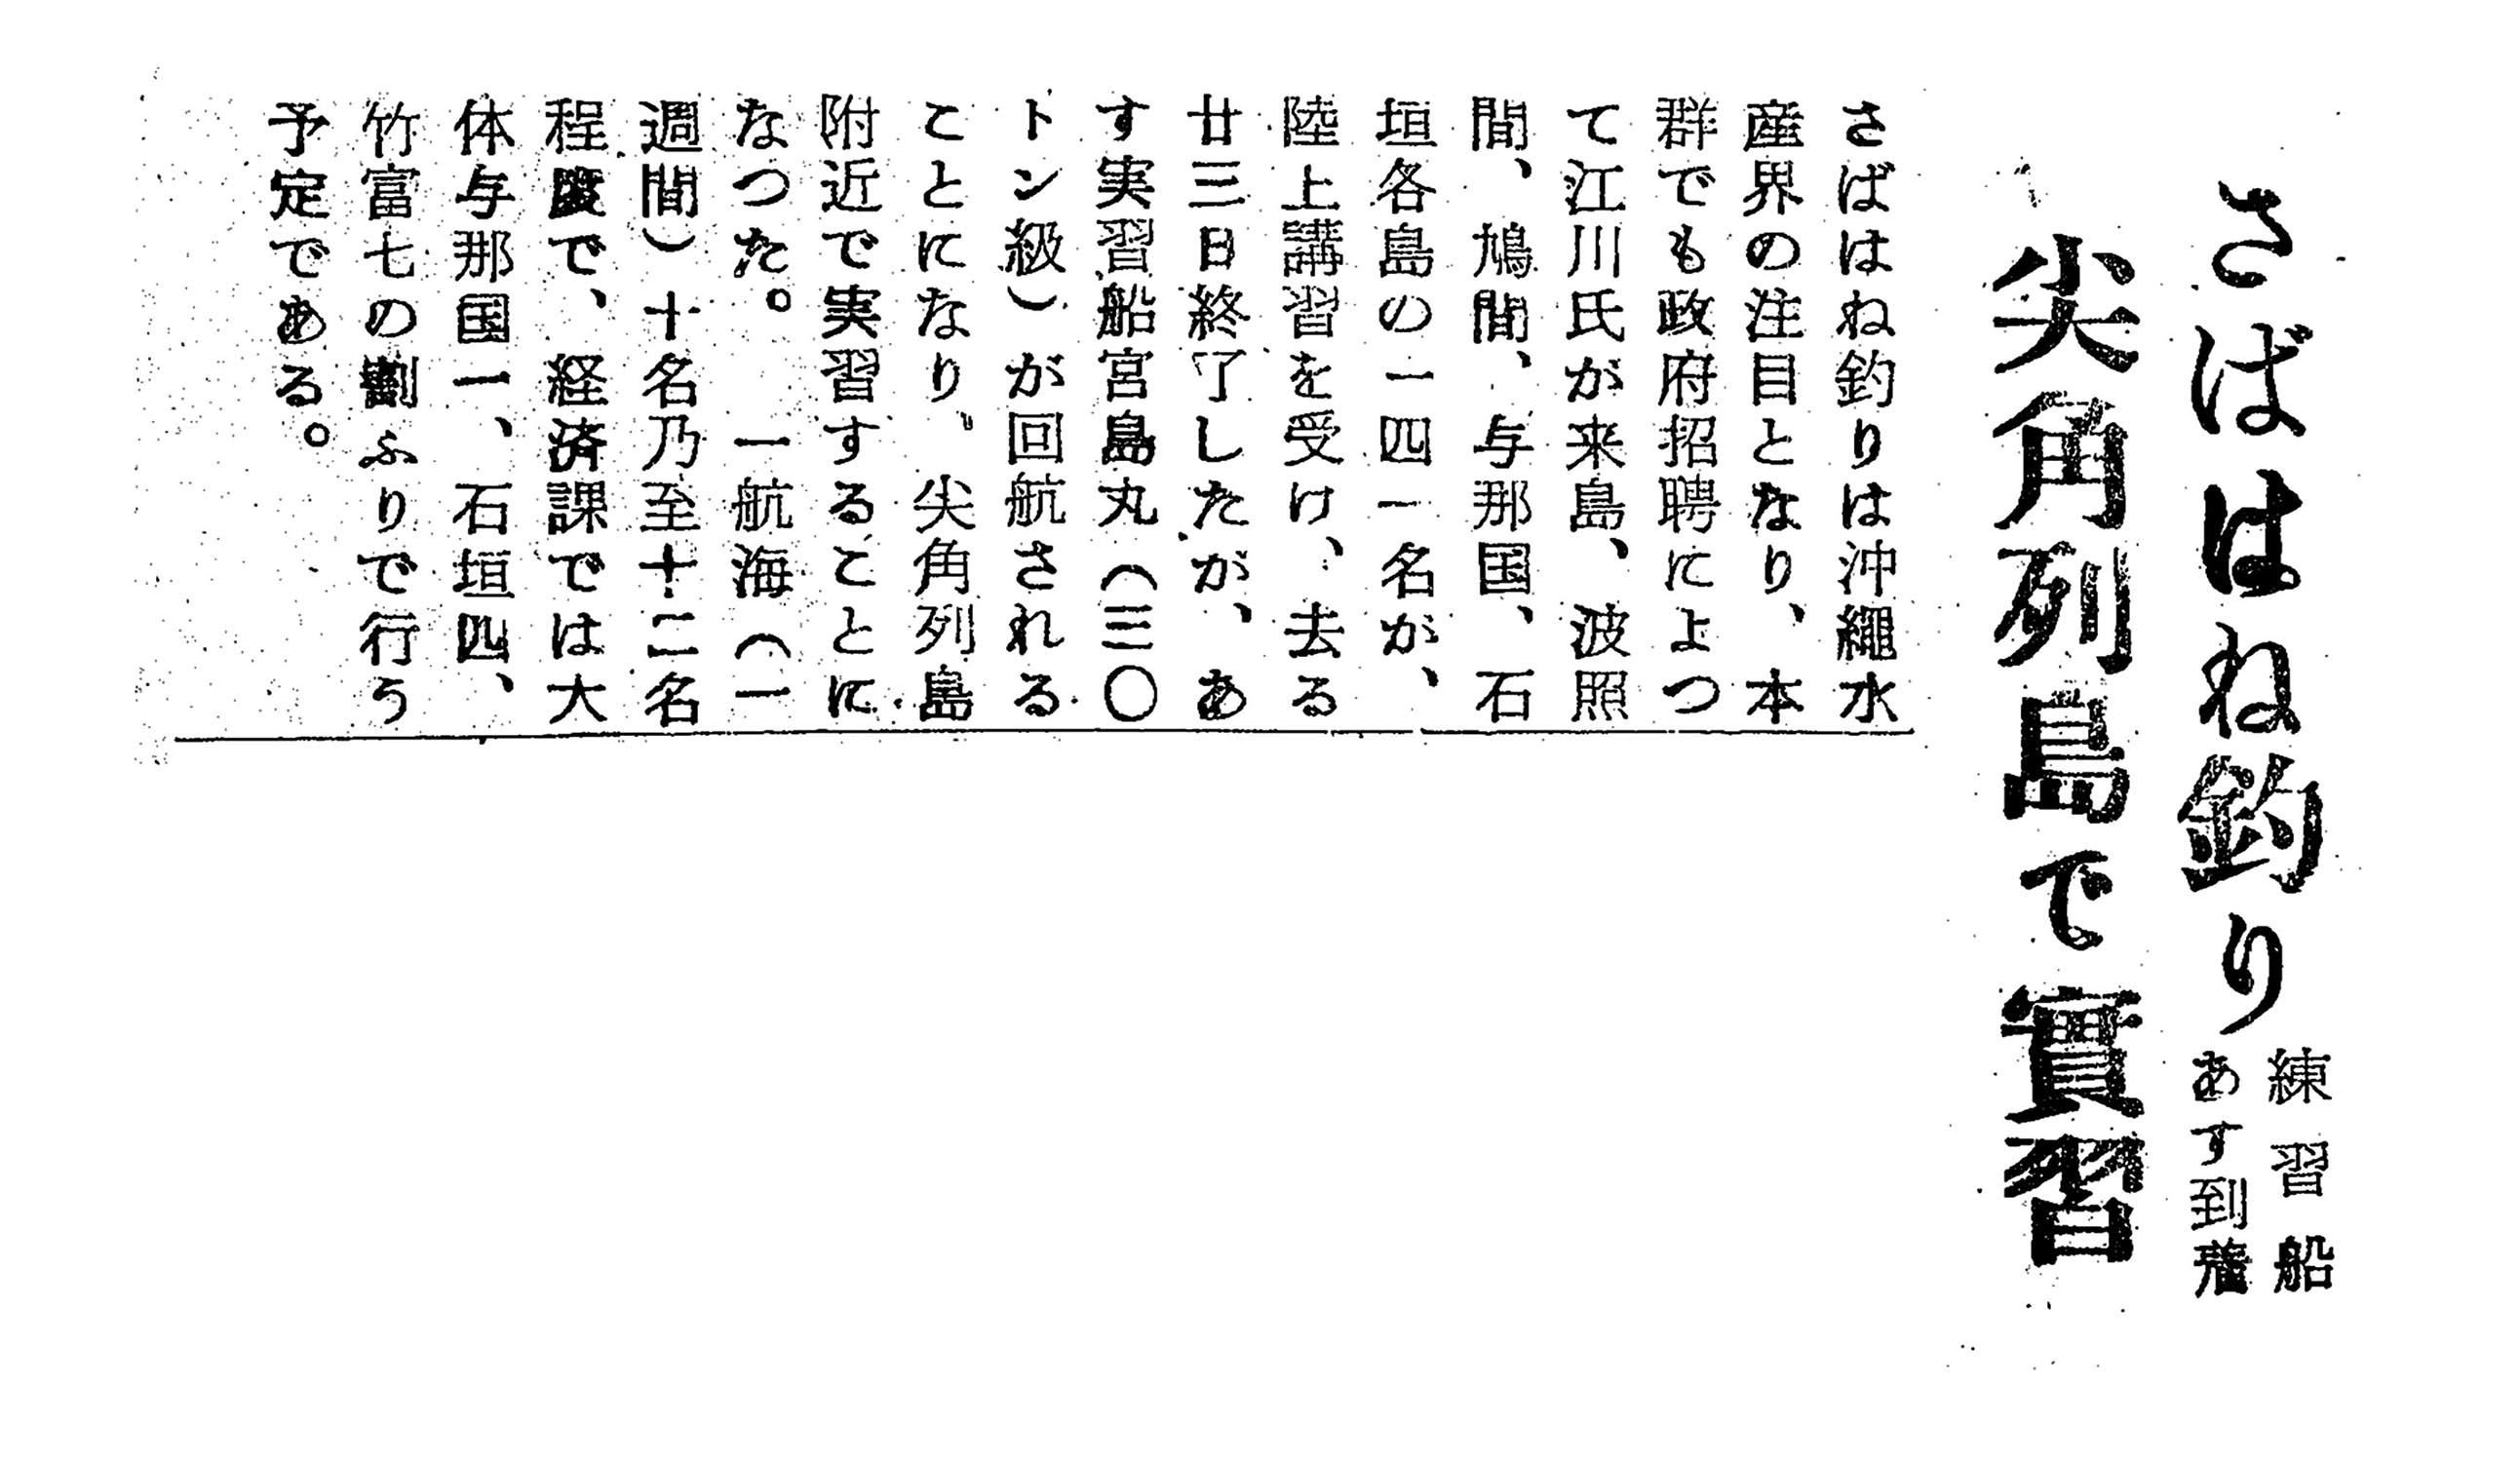 さばはね釣り
練習船
あす到着
尖角列島で實習
さばはね釣りは沖縄水
産界の注目となり、本
群でも政府招聘によつ
て江川氏が来島、波照
間、鳩間、与那国、石
垣各島の一四一名が、
陸上講習を受け、去る
廿三日終了したが、あ
す実習船宮島丸(三〇
トン級)が回航される
ことになり、尖角列島
附近で実習することに
なつた。一航海(一
週間)十名乃至十二名
程度で、経済課では大
体与那国一、石垣四、
竹富七の割ふりで行う
予定である。